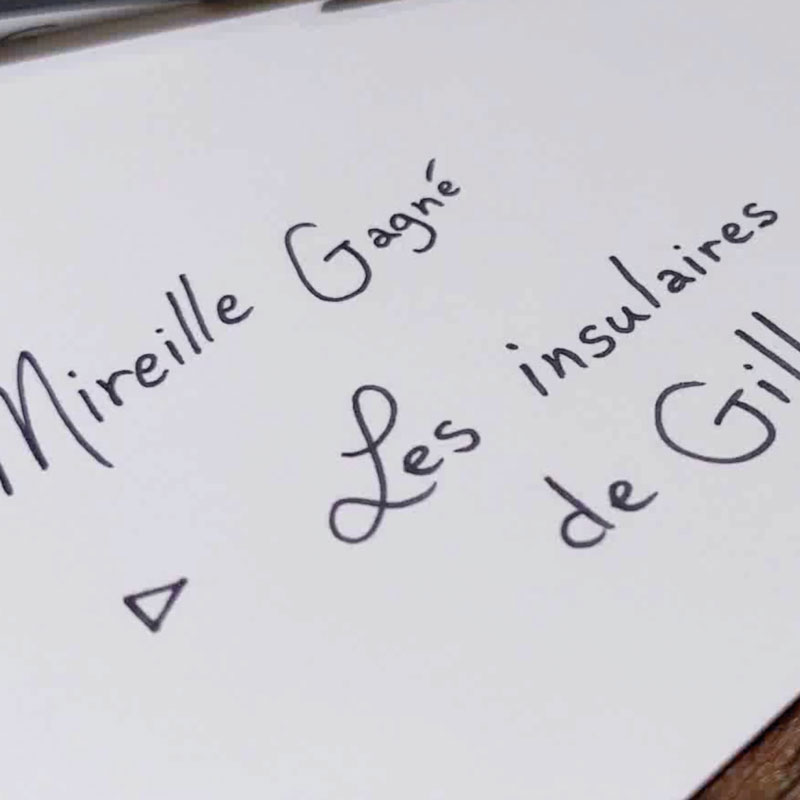 Mireille Gagné
Les insulaires
de Gill